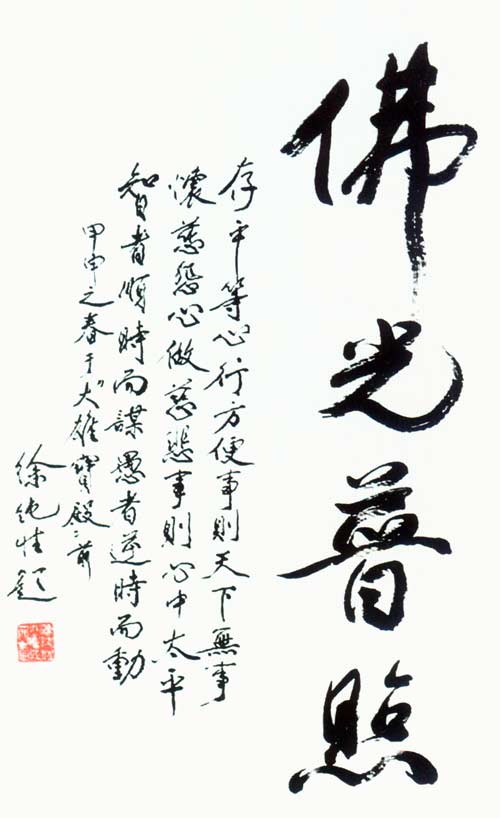 佛光普照
存平等心行方便事則天下無事
懷慈悲心做慈悲事則心中太平
智者順時而謀愚者逆時而動
甲申之春于大雄寶殿之前
徐純性題